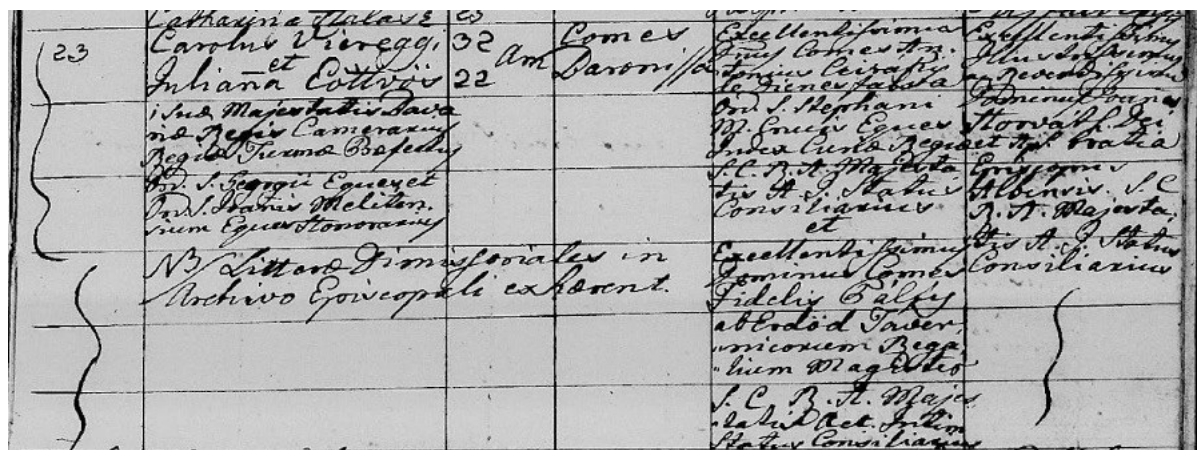 Catharina
23
Carolus Vieregg, 32
et
Juliana Eötvös 22
am
Comes
Baronissa
i Suæ Majestatis Bava
riæ Regis Camerarius
Regiæ Turmæ Præfectus
Ord. S. Georgii Eques et
Ord. S. Joanis Meliten
sium Eques Honorarius
NB Litteræ Dimissoriales in
Archivo Episcopali exhærent.
Excellentissimus
Dnus Comes An.
tonius Cziráky
de Dienesfalva
Ord. S. Stephani
M. Crucis Eques
Judex Curiæ Regiæ
S. C. R. A. Majesta
tis A. I. Status
Consiliarius
et
Excellentissimus
Dominus Comes
Fidelis Pálfy
ab Erdöd Taver.
nicorum Rega
lium Magister
S. C. R. A. Majes
tatis Act. Intim
Status Consiliarius
Excellentissimus
Illustrissimus
ac Reverendissimus
Dominus Joanes
Horváth Dei
et Ap. Gratia
Episcopus
Albensis. S. C.
R. A. Majesta.
tis A. I. Status
Consiliarius